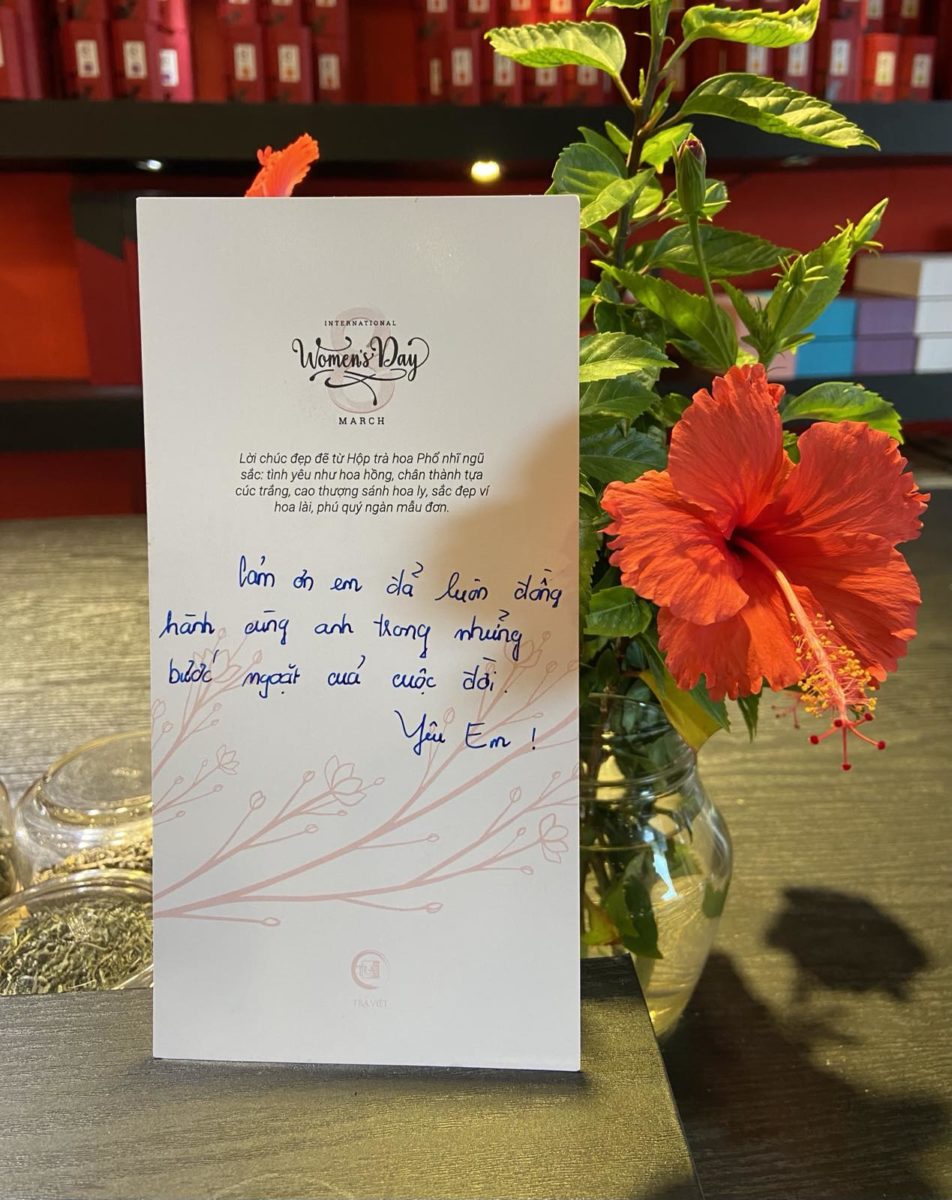 INTERNATIONAL
Women's Day
8
MARCH
Lời chúc đẹp đẽ từ Hộp trà hoa Phổ nhĩ ngũ
sắc: tình yêu như hoa hồng, chân thành tựa
cúc trắng, cao thượng sánh hoa ly, sắc đẹp ví
hoa lài, phú quý ngàn mẫu đơn.
Cảm ơn em đã luôn đồng
hành cùng anh trong những
bước ngoặt của cuộc đời.
Yêu Em !
TRÀ VIỆT